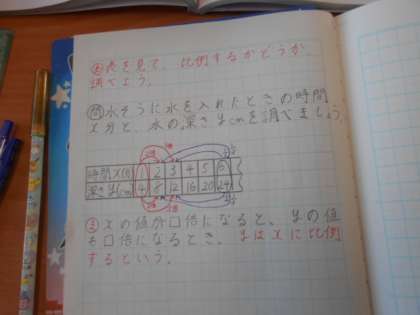 め表を見て、比例するかどうか
調べよう。
問水そうに水を入れたときの時間
x分と、水の深さycmを調べましょう。
時間x(分) 1 2 3 4 5 6
深さycm 4 8 12 16 20 24
xの値が口倍になると、yの値
も口倍になるとき、yはxに比例
するという。